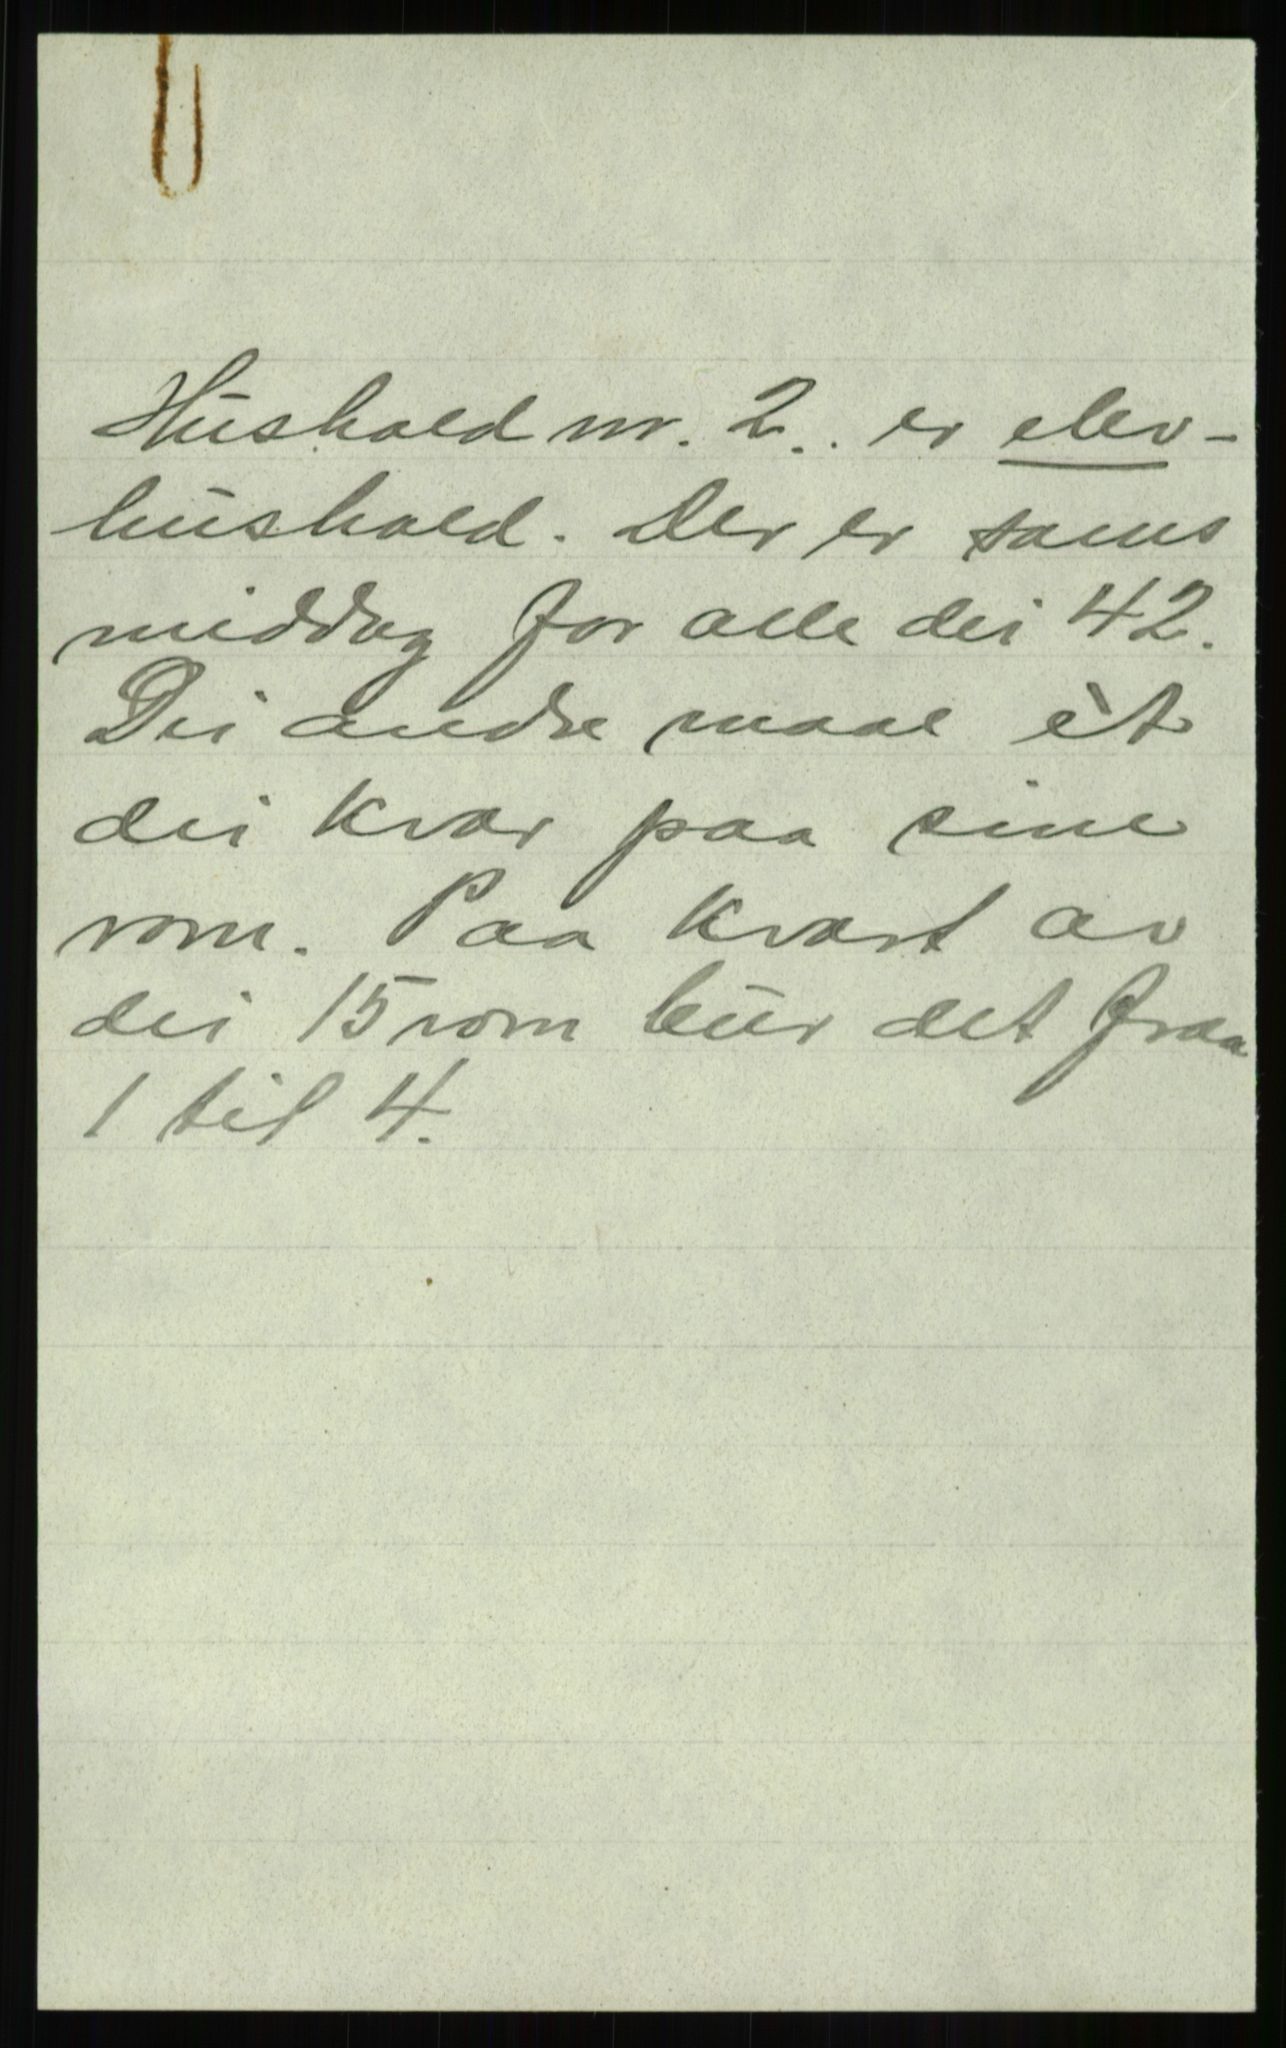 Hushald nr. 2. er elev-
hushald. Der er sams
middag for alle dei 42.
Dei andre maal èt
dei kvar paa sine
rom. Paa kvart av
dei 15 rom bur det fraa
1 til 4.